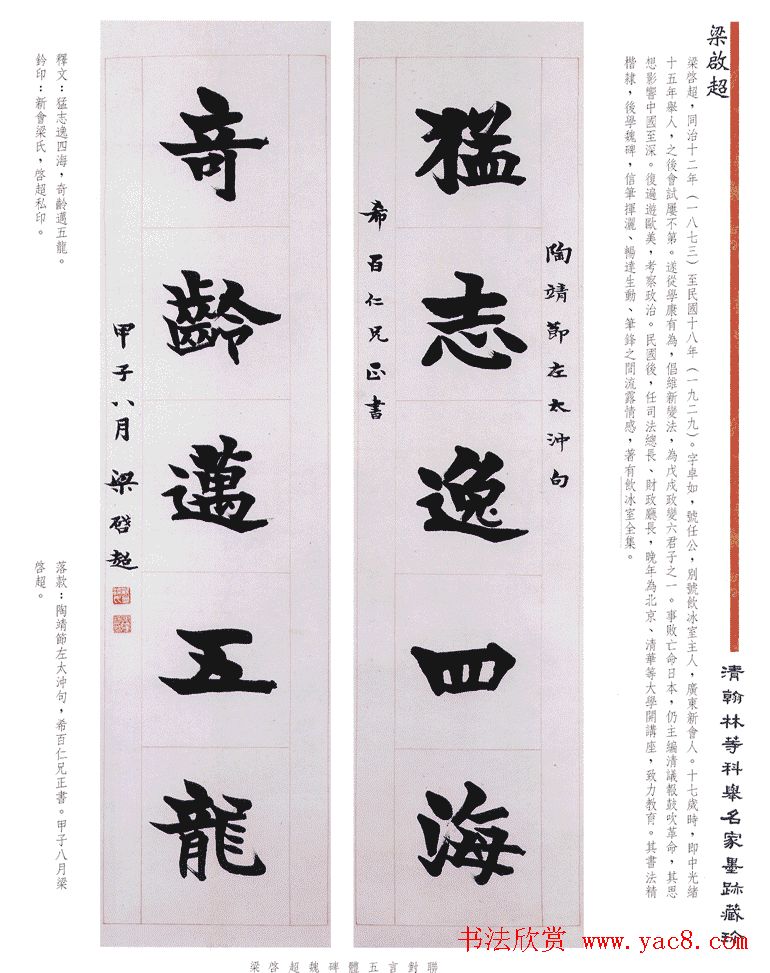 梁啟超
清翰林等科舉名家墨跡藏珍
梁啓超，同治十二年（一八七三）至民國十八年（一九二九）。字卓如，號任公，別號飲冰室主人，廣東新會人。十七歲時，即中光緒
十五年舉人，之後會試屢不第。遂從學康有為，倡維新變法，為戊戌政變六君子之一。事敗亡命日本，仍主編清議報鼓吹革命，其思
想影響中國至深。復遍遊歐美，考察政治。民國後，任司法總長、財政廳長，晚年為北京、清華等大學開講座，致力教育。其書法精
楷隸，後學魏碑，信筆揮灑、暢達生動、筆鋒之間流露情感，著有飲冰室全集。
陶靖節左太沖句
猛志逸四海
希百仁兄正書
奇齡邁五龍
甲子八月梁啓超
釋文：猛志逸四海，奇齡邁五龍。
鈐印：新會梁氏，啓超私印。
落款：陶靖節左太沖句，希百仁兄正書。甲子八月梁
啓超。
梁啓超魏碑體五言對聯
书法欣赏 www.yac8.com